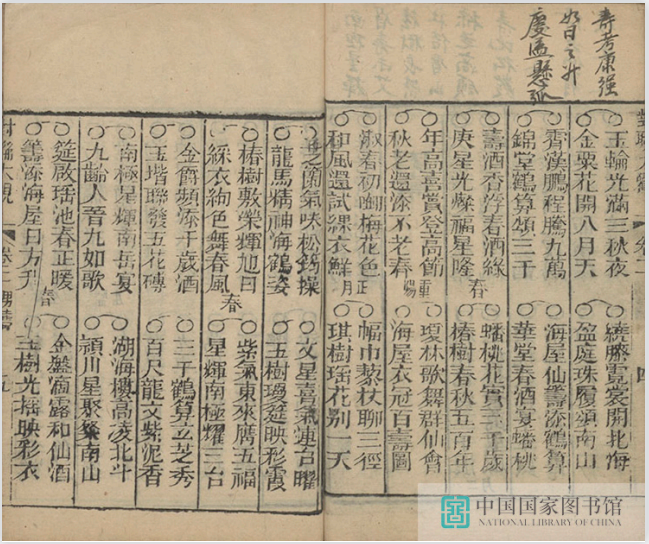 壽考康强
如日之升
慶溢懸弧
對聯大觀 卷二 四
玉輪光滿三秋夜 繞膝霓裳開北海
金粟花開八月天 盈庭珠履頌南山
霄漢鵬程騰九萬 海屋仙籌添鶴算
錦堂鶴算頌三千 華堂春酒宴蟠桃
壽酒香浮春酒綠 蟠桃花實三千歲
庚星光燦福星隆 春 椿樹春秋五百年
年高喜賞登高節 瓊林歌舞群仙會
秋老還添不老春 重陽 海屋衣冠百壽圖
淑春初 梅花色 幅巾藜杖聊三徑
和風還試綵衣鮮 正月 琪樹瑤花别一天
芝蘭氣味松筠操 文星喜氣連台曜
龍馬精神海鶴姿 玉樹瓊筵映彩霞
椿樹敷榮輝旭日 紫氣東來膺五福
綵衣絢色舞春風 春 星輝南極耀三台
金爵頻添千歲酒 三千鶴算立芝秀
玉堦聯發五花磚 百尺龍文紫泥香
南極星輝南岳宴 湖海樓高凌北斗
九齡人晉九如歌 潁川星聚燦南山
筵啟瑤池春正暖 金盤滴露和仙酒
籌添海屋日方升 春 玉樹光摇映彩衣
對聯大觀 卷二 五
中国国家图书馆
NATIONAL LIBRARY OF CHINA